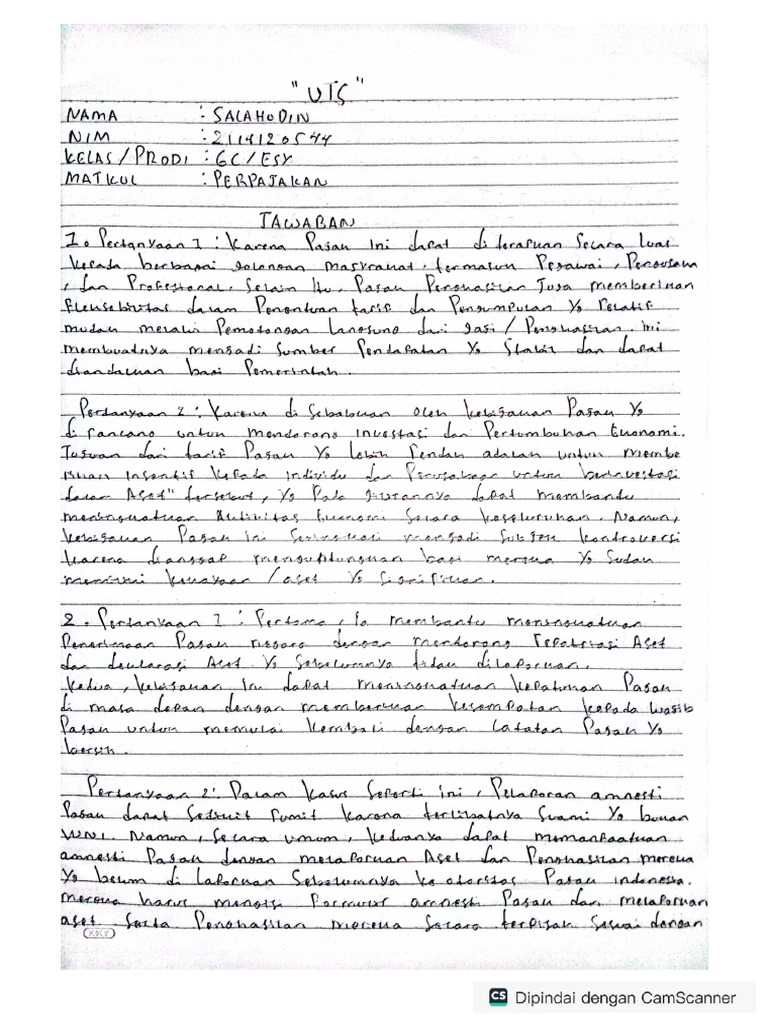 "UTS"
NAMA : SALAHUDIN
NIM : 2114120544
KELAS/PRODI : 6C/ESY
MATKUL : PERPAJAKAN
JAWABAN
1. Pertanyaan 1 : Karena Pajak Ini dapat di terapkan Secara luas
kepada berbagai golongan masyrakat. termasuk Pegawai, Pengusaha
, dan Profesional. Selain Itu, Pajak Penghasilan Juga memberikan
Fleksebilitas dalam Penentuan tarif dan Pengumpulan Yg Relatif
mudah melalui Pemotongan langsung dari gaji / Penghasilan. Ini
membuatnya menjadi Sumber Pendapatan Yg Stabil dan dapat
diandalkan bagi Pemerintah.
Pertanyaan 2 : Karena di Sebabkan oleh kebijakan Pajak Yg
di rancang untuk mendorong Investasi dan Pertumbuhan Ekonomi.
Tujuan dari tarif Pajak Yg lebih Rendah adalah untuk membe
rikan Insentif kepada individu dan Perusahaan untuk berinvestasi
dalam Aset" tersebut, Yg Pada gilirannya dapat membantu
meningkatkan Aktivitas Ekonomi Secara keseluruhan. Namun,
kebijakan Pajak Ini Seringkali menjadi Subjek kontroversi
karena dianggap menguntungkan bagi mereka Yg Sudah
memiliki kekayaan / aset Yg Signifikan.
2. Pertanyaan 1 : Pertama, Ia membantu meningkatkan
Penerimaan Pajak negara dengan mendorong Repatriasi Aset
dan deklarasi Aset Yg Sebelumnya tidak dilaporkan.
Kedua, kebijakan Ini dapat meningkatkan kepatuhan Pajak
di masa depan dengan memberikan kesempatan kepada wajib
Pajak untuk memulai kembali dengan catatan Pajak Yg
bersih.
Pertanyaan 2 : Dalam kasus Seperti ini, Pelaporan amnesti
Pajak dapat Sedikit rumit karena terlibatnya Suami Yg bukan
WNI. Namun, Secara umum, keduanya dapat memanfaatkan
amnesti Pajak dengan melaporkan Aset dan Penghasilan mereka
Yg belum di laporkan Sebelumnya ke otoritas Pajak Indonesia.
mereka harus mengisi Formulir amnesti Pajak dan melaporkan
aset Serta Penghasilan mereka Secara terpisah Sesuai dengan
KIKY
CS Dipindai dengan CamScanner